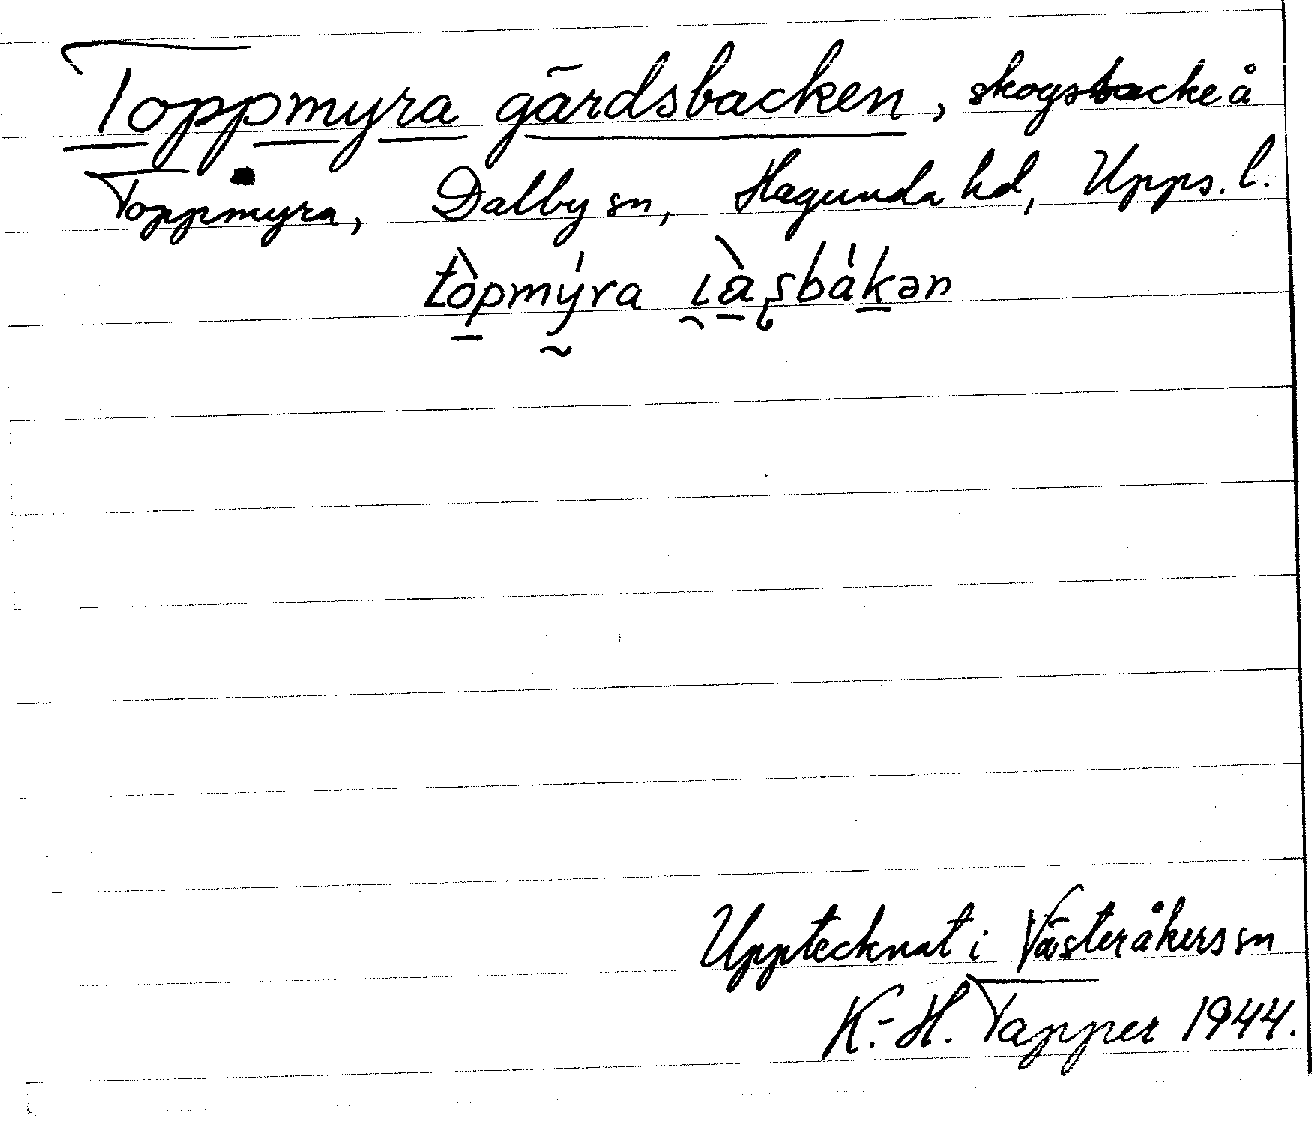 Toppmyra gärdsbacken, skogsbacke å
Toppmyra, Dalby sn, Hagunda hd, Upps. l.
tòpmýra ɩàʂbákən
Upptecknat i Västeråkers sn
K.-H. Tapper 1944.